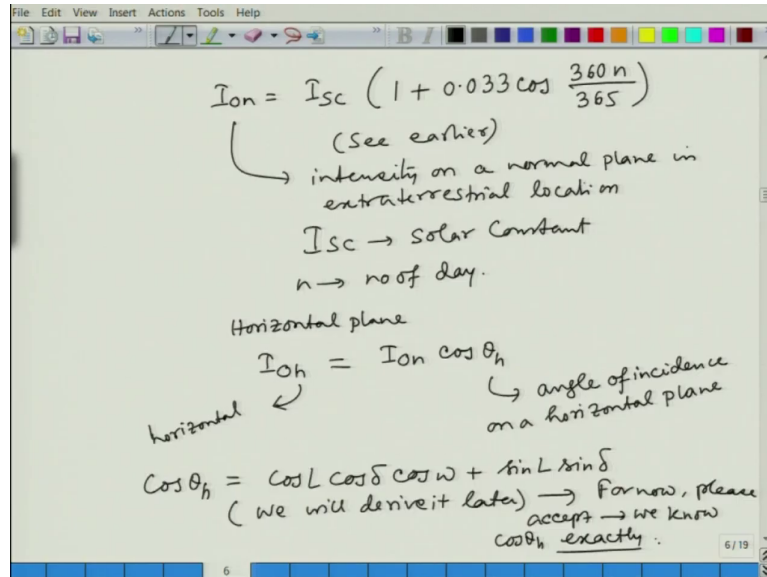 File Edit View Insert Actions Tools Help
B I
Ion = Isc (1 + 0.033 cos 360 n / 365)
(see earlier)
intensity on a normal plane in
extraterrestrial location
Isc → solar constant
n → no of day.
Horizontal plane
Ioh = Ion cos θh
horizontal
angle of incidence
on a horizontal plane
cos θh = cosL cosδ cosω + sinL sinδ
(we will derive it later) → For now, please
accept → we know
cosθh exactly.
6/19
6